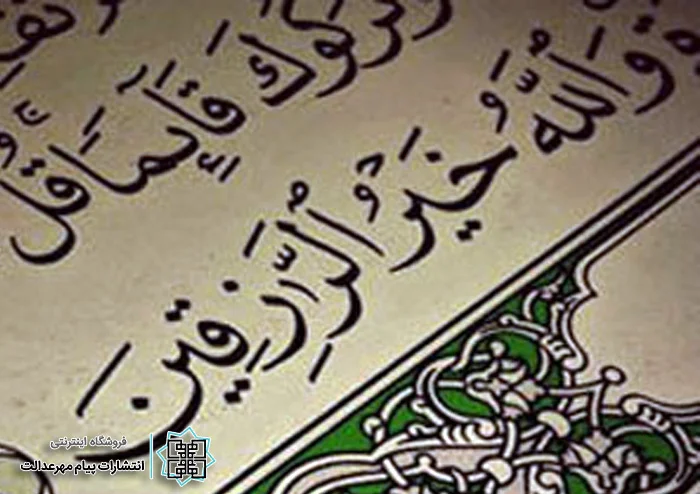 تَرَكُوكَ قَآئِمًا قُلْ
وَاللَّهُ خَيْرُ الرَّٰزِقِينَ
فروشگاه اینترنتی
انتشارات پیام مهرعدالت